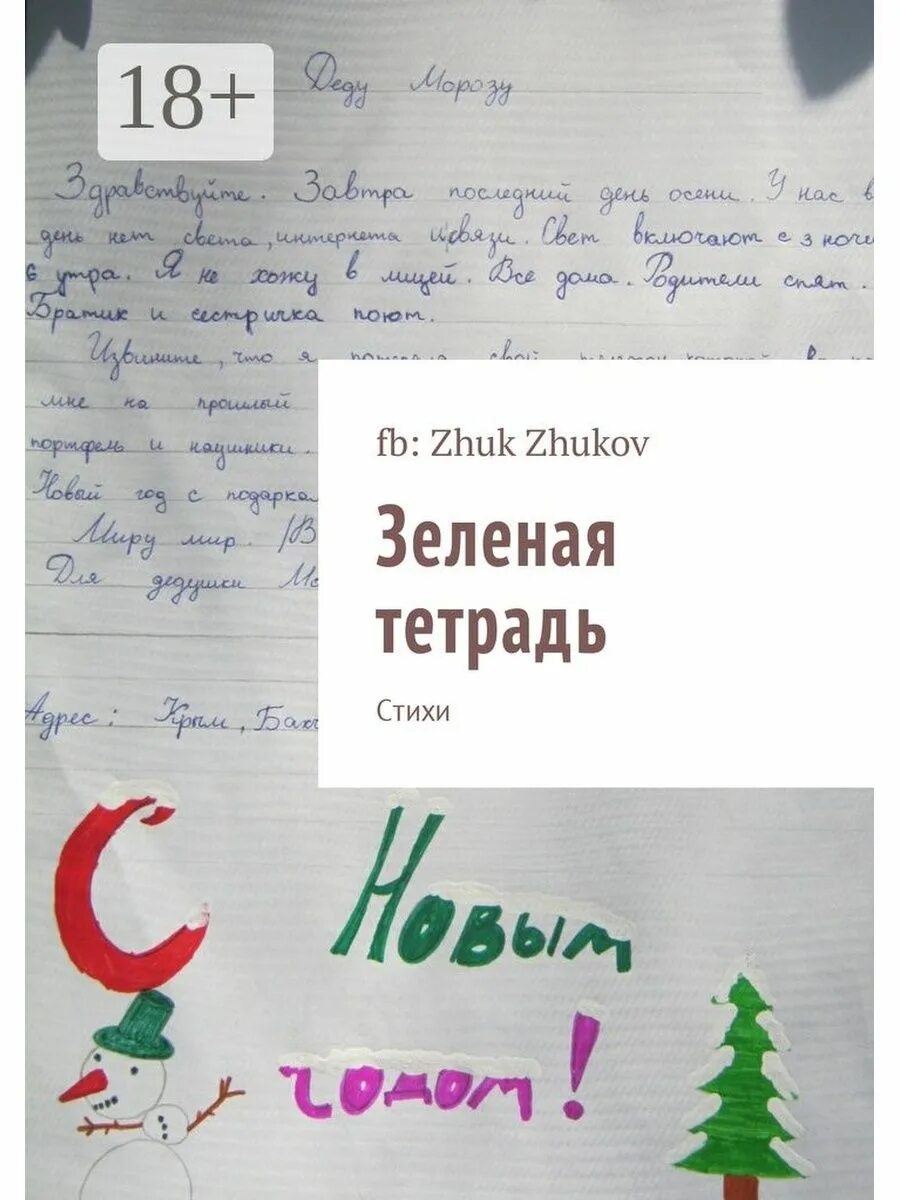 18+
Деду Морозу
Здравствуйте. Завтра последний день осени. У нас в
день нет света, интернета и связи. Свет включают с 3 ночи
6 утра. Я не хожу в лицей. Все дома. Родители спят.
Братик и сестричка поют.
Извините, что я свой
мне на прошлый
портфель и наушники.
Новый год с подарка
Миру мир.
Для дедушки Мо
Адрес: Крым, Бахч
fb: Zhuk Zhukov
Зеленая
тетрадь
Стихи
С Новым
годом!